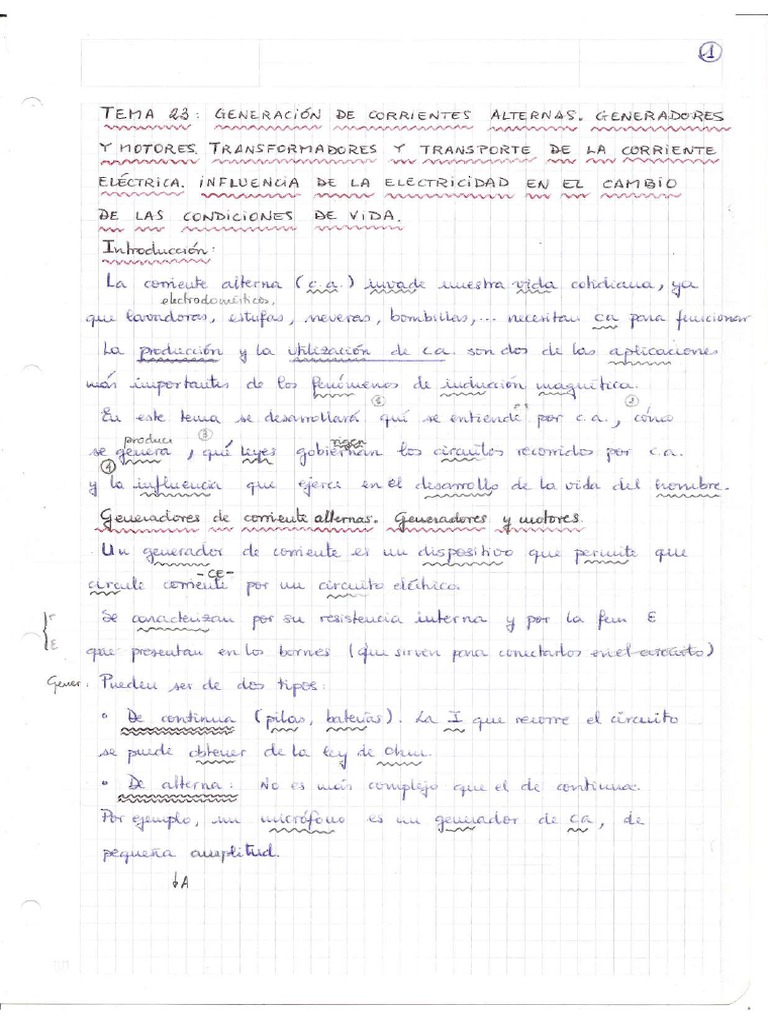 1
TEMA 23: GENERACIÓN DE CORRIENTES ALTERNAS. GENERADORES
Y MOTORES. TRANSFORMADORES Y TRANSPORTE DE LA CORRIENTE
ELÉCTRICA. INFLUENCIA DE LA ELECTRICIDAD EN EL CAMBIO
DE LAS CONDICIONES DE VIDA.
Introducción:
La corriente alterna (c.a.) invade nuestra vida cotidiana, ya
electrodomésticos,
que lavadoras, estufas, neveras, bombillas,... necesitan ca para funcionar
La producción y la utilización de ca. son dos de las aplicaciones
más importantes de los fenómenos de inducción magnética.
En este tema se desarrollará qué se entiende por c.a., cómo
produce ③ rigen
se genera, qué leyes gobiernan los circuitos recorridos por c.a.
④
y la influencia que ejerce en el desarrollo de la vida del hombre.
Generadores de corriente alternas. Generadores y motores.
Un generador de corriente es un dispositivo que permite que
-CE-
circule corriente por un circuito eléctrico.
Se caracterizan por su resistencia interna y por la fem E
r
E
que presentan en los bornes (que sirven para conectarlos en el circuito)
Gener. Pueden ser de dos tipos:
• De continua (pilas, baterías). La I que recorre el circuito
se puede obtener de la ley de Ohm.
• De alterna: No es más complejo que el de continua.
Por ejemplo, un micrófono es un generador de ca, de
pequeña amplitud.
↓A